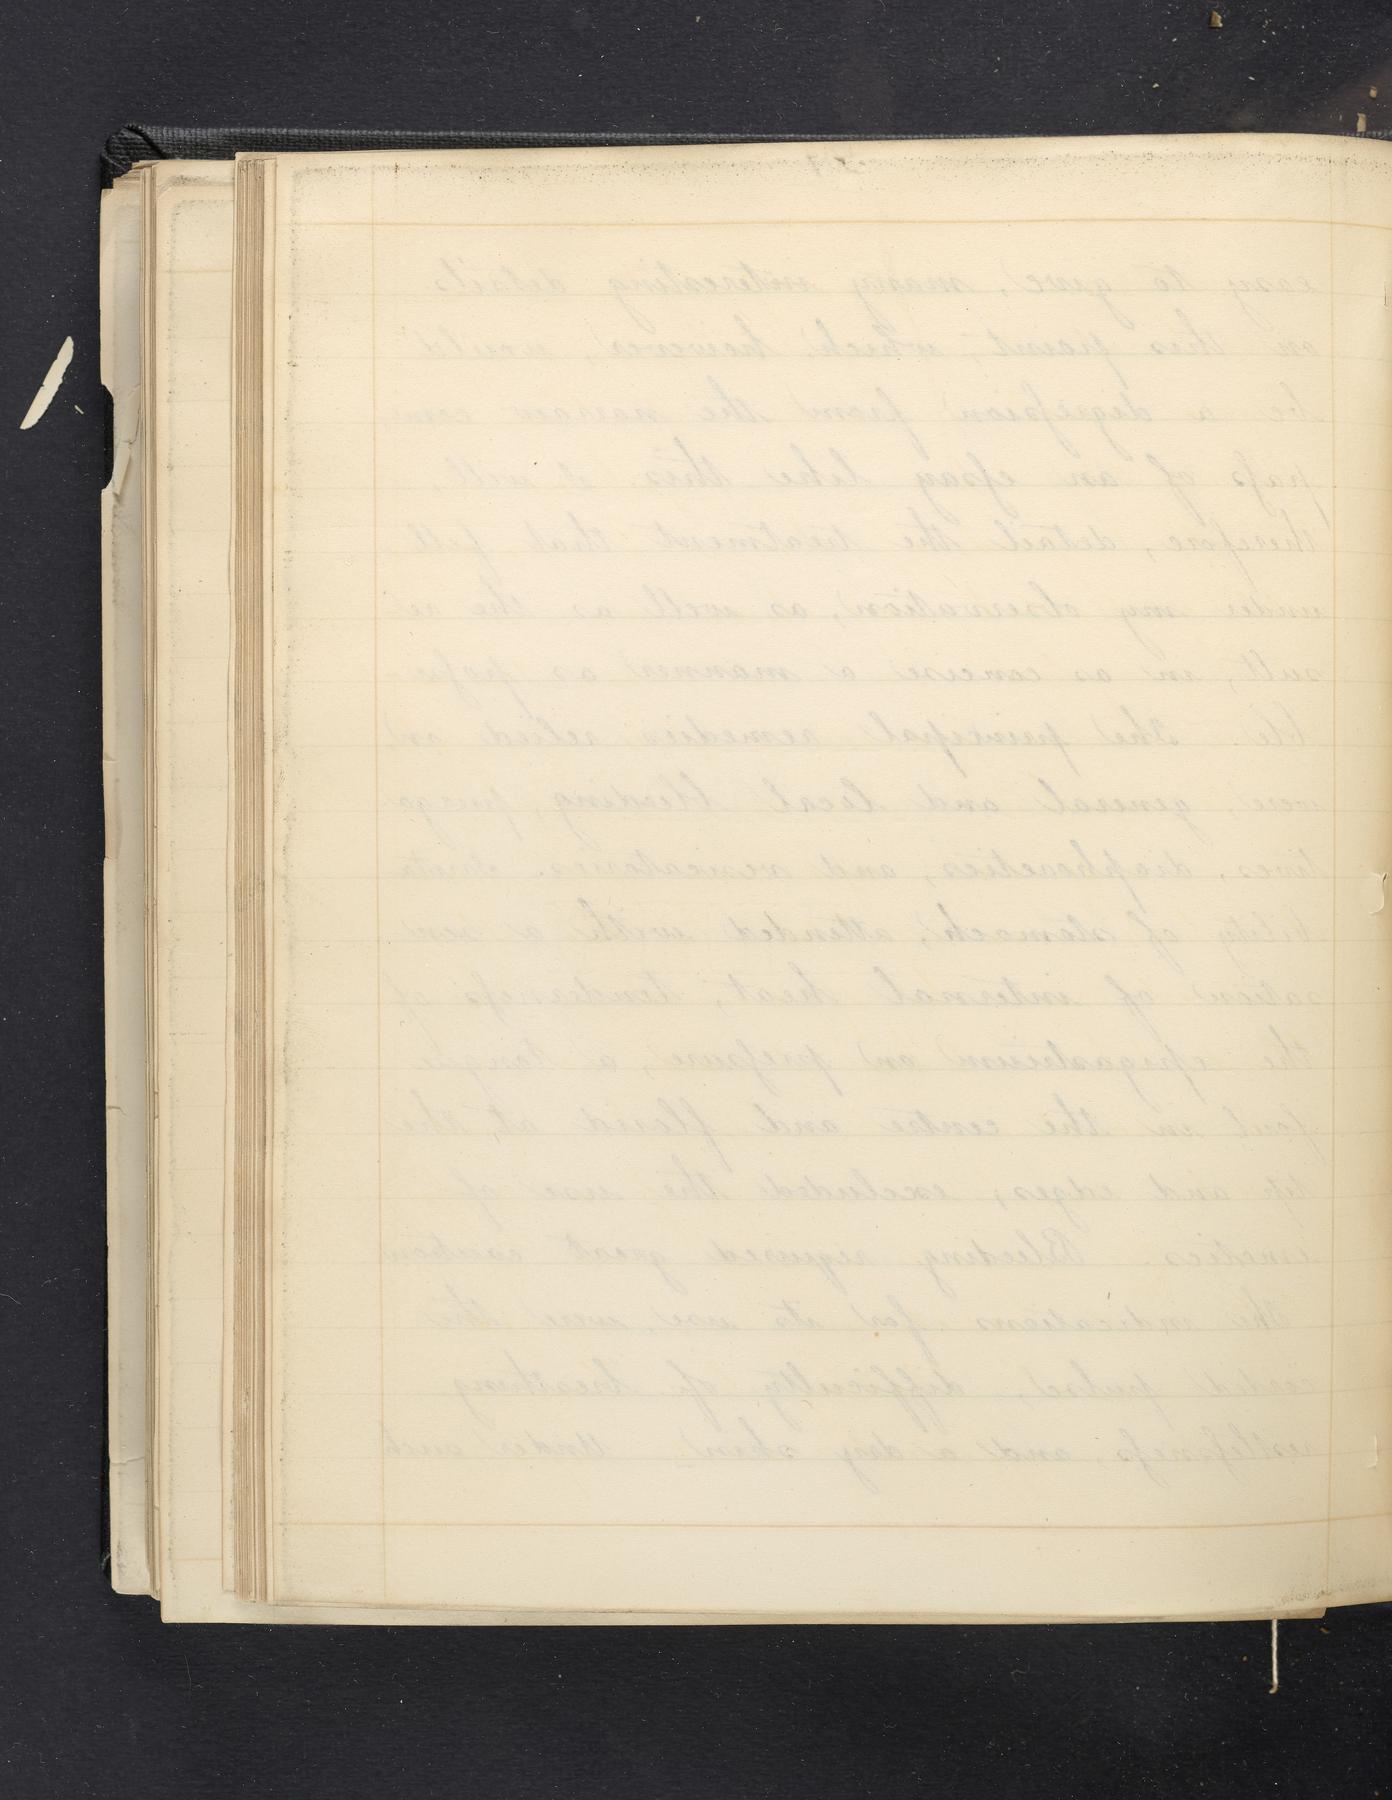 easy to give, many interesting details
on this point, which, however, would
be a digreſsion from the narrow com
paſs of an eſsay like this. I will,
therefore, detail the treatment that fell
under my observation, as well as the re
sult, in as concise a manner as poſsi-
ble. The principal remedies relied on
were, general and local bleeding, purga
tives, diaphoretics, and vesicatories. Irrita
bility of stomach, attended with a sen
sation of internal heat, tenderneſs of
the epigastrium on preſsure, a tongue
foul in the centre and florid at the
tip and edges, excluded the use of
emetics. Bleeding required great caution
The indications for its use were the
corded pulse, difficulty of breathing,
restleſsneſs, and a dry skin. Under such